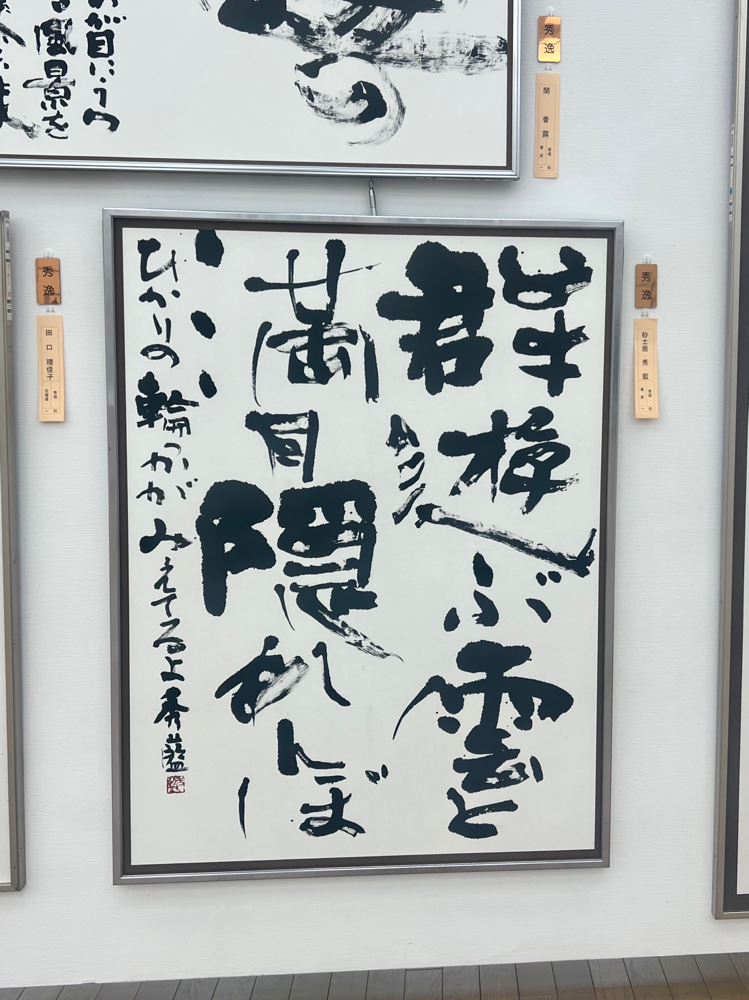 が目にうつ
る風景を
秀逸
群遊ぶ雲と
満月隠れんぼ
ひかりの輪っかがみえてるよ 秀藍
秀逸
砂土居 秀藍
秀逸
田口 理佳子